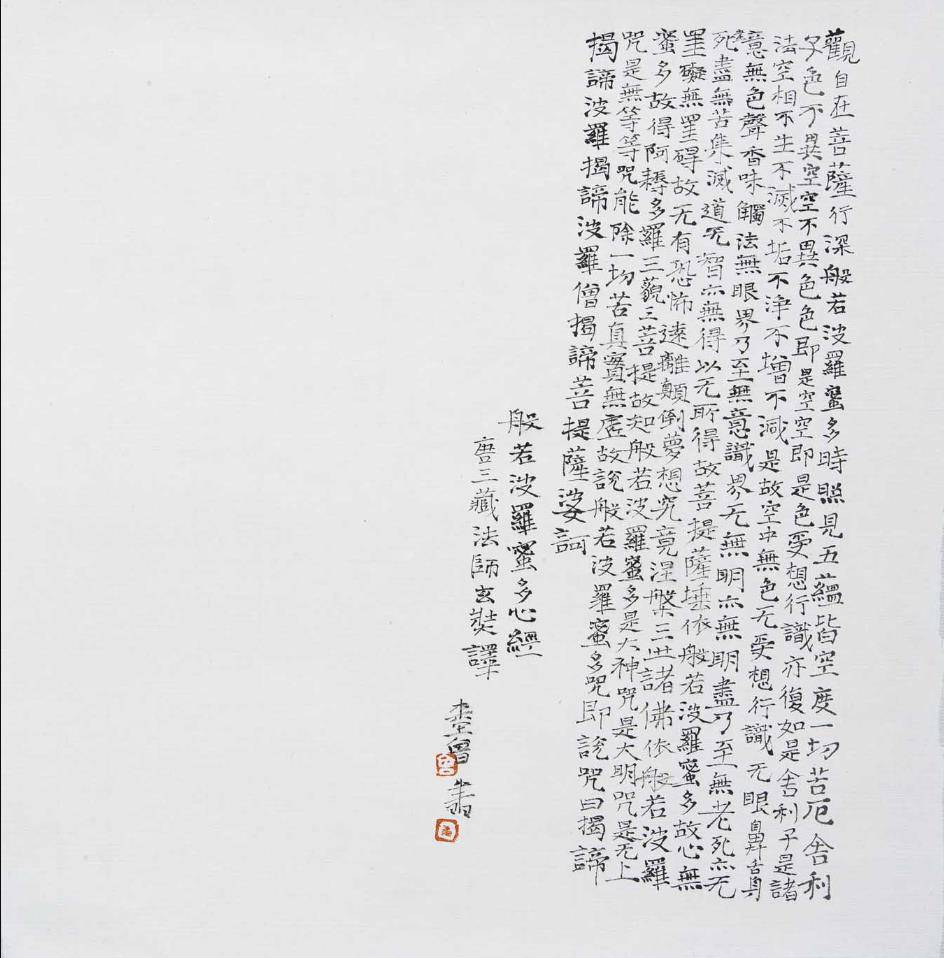 觀自在菩薩行深般若波羅蜜多時照見五蘊皆空度一切苦厄舍利
子色不異空空不異色色即是空空即是色受想行識亦復如是舍利子是諸
法空相不生不滅不垢不淨不增不減是故空中無色无受想行識无眼鼻舌身
意無色聲香味觸法無眼界乃至無意識界无無明亦無明盡乃至無老死亦无
死盡無苦集滅道无智亦無得以无所得故菩提薩埵依般若波羅蜜多故心無
罣礙無罣碍故无有恐怖遠離顛倒夢想究竟涅槃三世諸佛依般若波羅
蜜多故得阿耨多羅三藐三菩提故知般若波羅蜜多是大神咒是大明咒是无上
咒是無等等咒能除一切苦真實無虛故說般若波羅蜜多咒即說咒曰揭諦
揭諦波羅揭諦波羅僧揭諦菩提薩婆訶
般若波羅蜜多心經
唐三藏法師玄奘譯
書